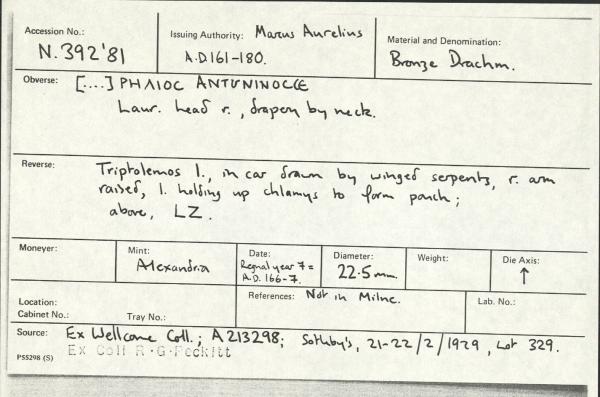 Accession No.: Issuing Authority: Marcus Aurelius Material and Denomination:
N.392'81 A.D.161-180. Bronze Drachm.
Obverse: [....] ΡΗΛΙΟC ΑΝΤWΝΙΝΟCCE
Laur. head r., drapery by neck.
Reverse: Triptolemos l., in car drawn by winged serpents, r. arm
raised, l. holding up chlamys to form pouch;
above, LZ.
Moneyer: Mint: Date: Diameter: Weight: Die Axis:
Alexandria Regnal year 7 = 22.5mm. ↑
A.D. 166-7.
Location: References: Not in Milne. Lab. No.:
Cabinet No.: Tray No.:
Source: Ex Wellcome Coll.; A213298; Sotheby's, 21-22/2/1929, Lot 329.
PSS298 (S) Ex Coll R.G.Peckitt